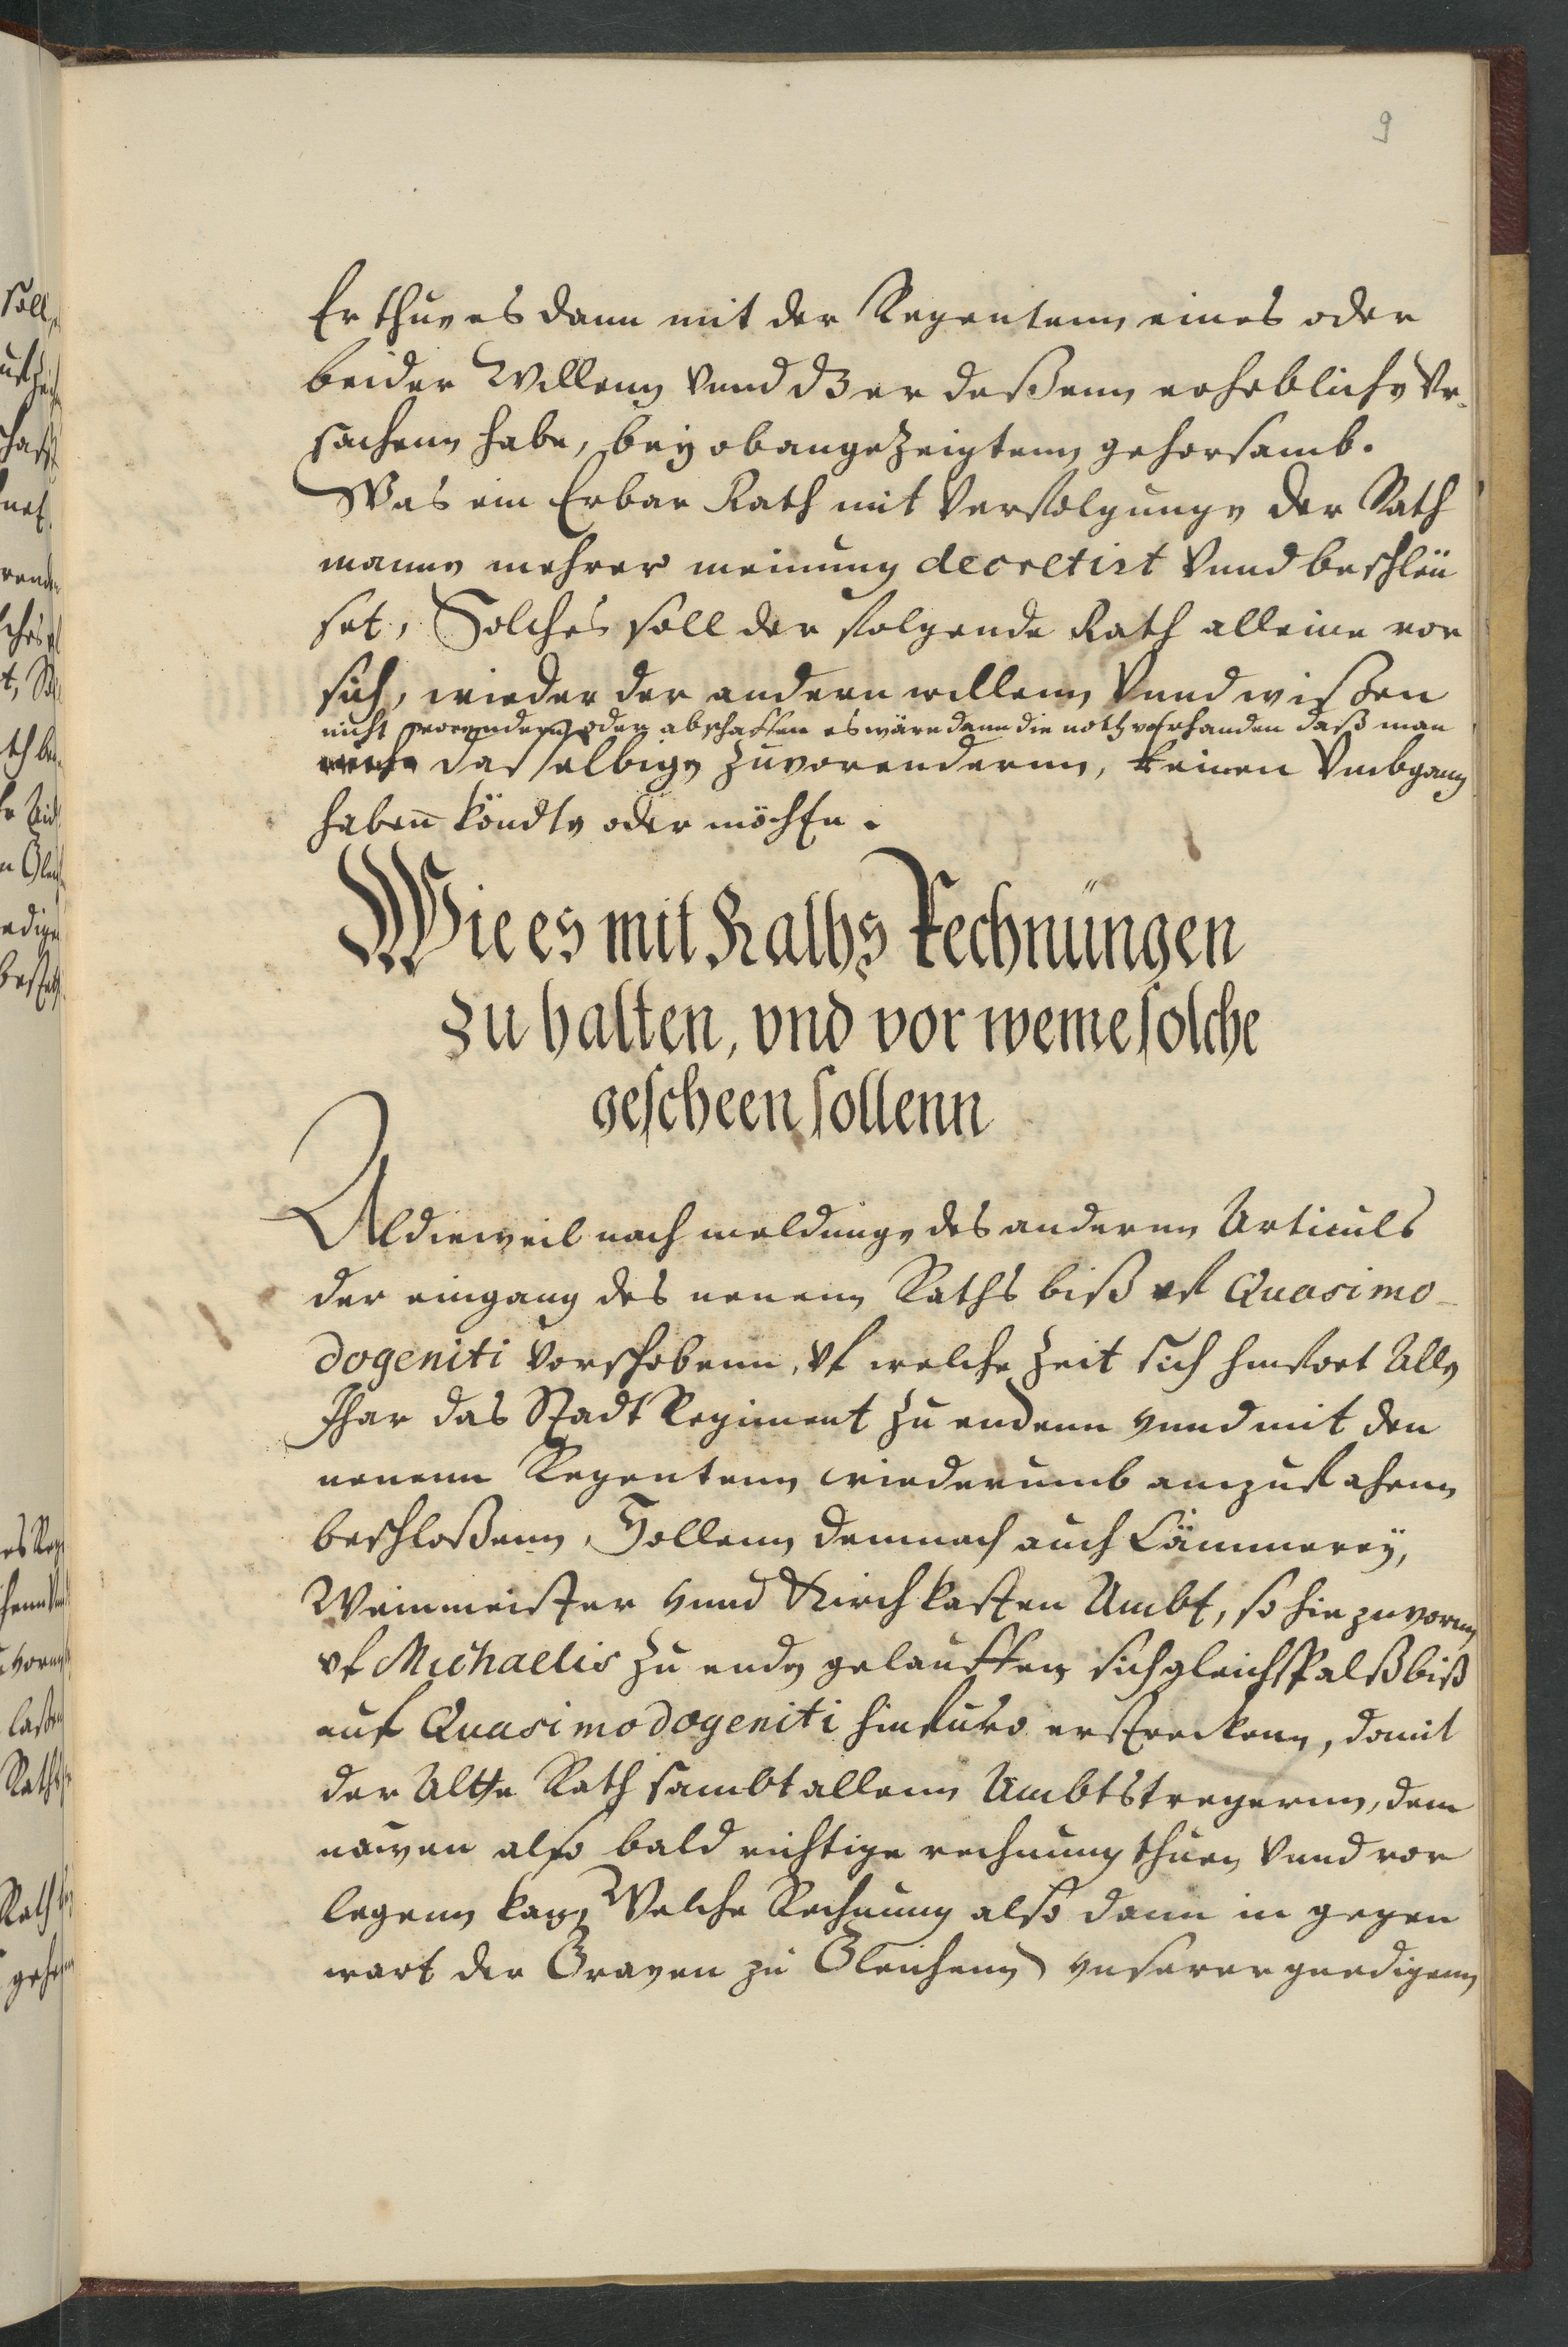 9
Er thue es dann mit der Regentenn eines oder
beider Willenn vnnd dz er deßenn erhebliche Vr-
sachenn habe, bey obangezeigtenn gehorsamb.
Was ein Erbar Rath mit Verfolgunge der Rath
manne mehrer meinung decretirt vnnd beschleü
set, Solches soll der folgende Rath alleine vor
sich, wieder der andern willenn vnnd wißen
nicht vorendern oder abschaffen es wäre dann die noth vorhanden daß man
dasselbige zuvorendernn, keinen Vmbgang
habenn köndte oder möchte.
Wie es mit Raths Rechnüngen
zu halten, vnd vor weme solche
gescheen sollenn
Aldieweil nach meldunge des anderenn Articuls
der eingang des neuenn Raths biß vf Quasimo-
dogeniti vorschobenn, vf welche Zeit sich hinfort Alle
Jhar das Stadt Regiment zu endenn vnnd mit den
neuenn Regentenn wiederumb anzufahenn
beschloßenn, Sollenn demnach auch Cämmerey,
Weinmeister vnnd Kirchkasten Ambt, so hie zuvorenn
vf Michaelis zu ende gelauffen sich gleichsfalß biß
auf Quasimodogeniti hinfuro erstreckenn, damit
der Alte Rath sambt allenn Ambtstregernn, dem
newen also bald richtige rechnung thuen vnnd vor
legenn kan, Welche Rechnung also dann in gegen
wart der Graven zu Gleichenn vnserer gnedigenn